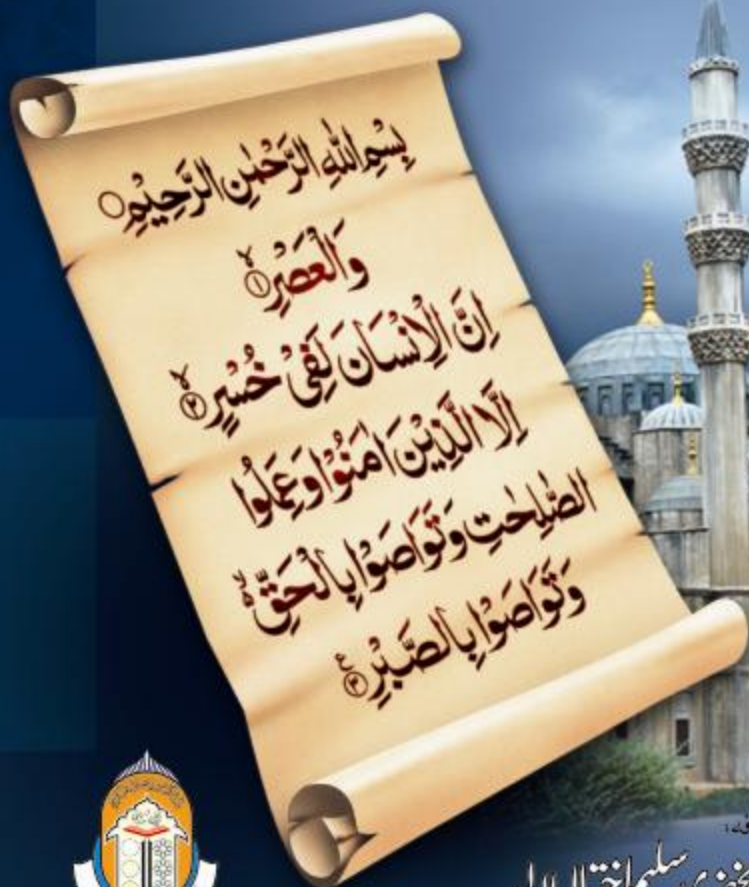 بِسْمِ اللّٰهِ الرَّحْمٰنِ الرَّحِيْمِ
وَالْعَصْرِ ۙ﴿۱﴾
اِنَّ الْاِنْسَانَ لَفِىْ خُسْرٍ ۙ﴿۲﴾
اِلَّا الَّذِيْنَ اٰمَنُوْا وَعَمِلُوا
الصّٰلِحٰتِ وَتَوَاصَوْا بِالْحَقِّ ۙ
وَتَوَاصَوْا بِالصَّبْرِ ﴿۳﴾